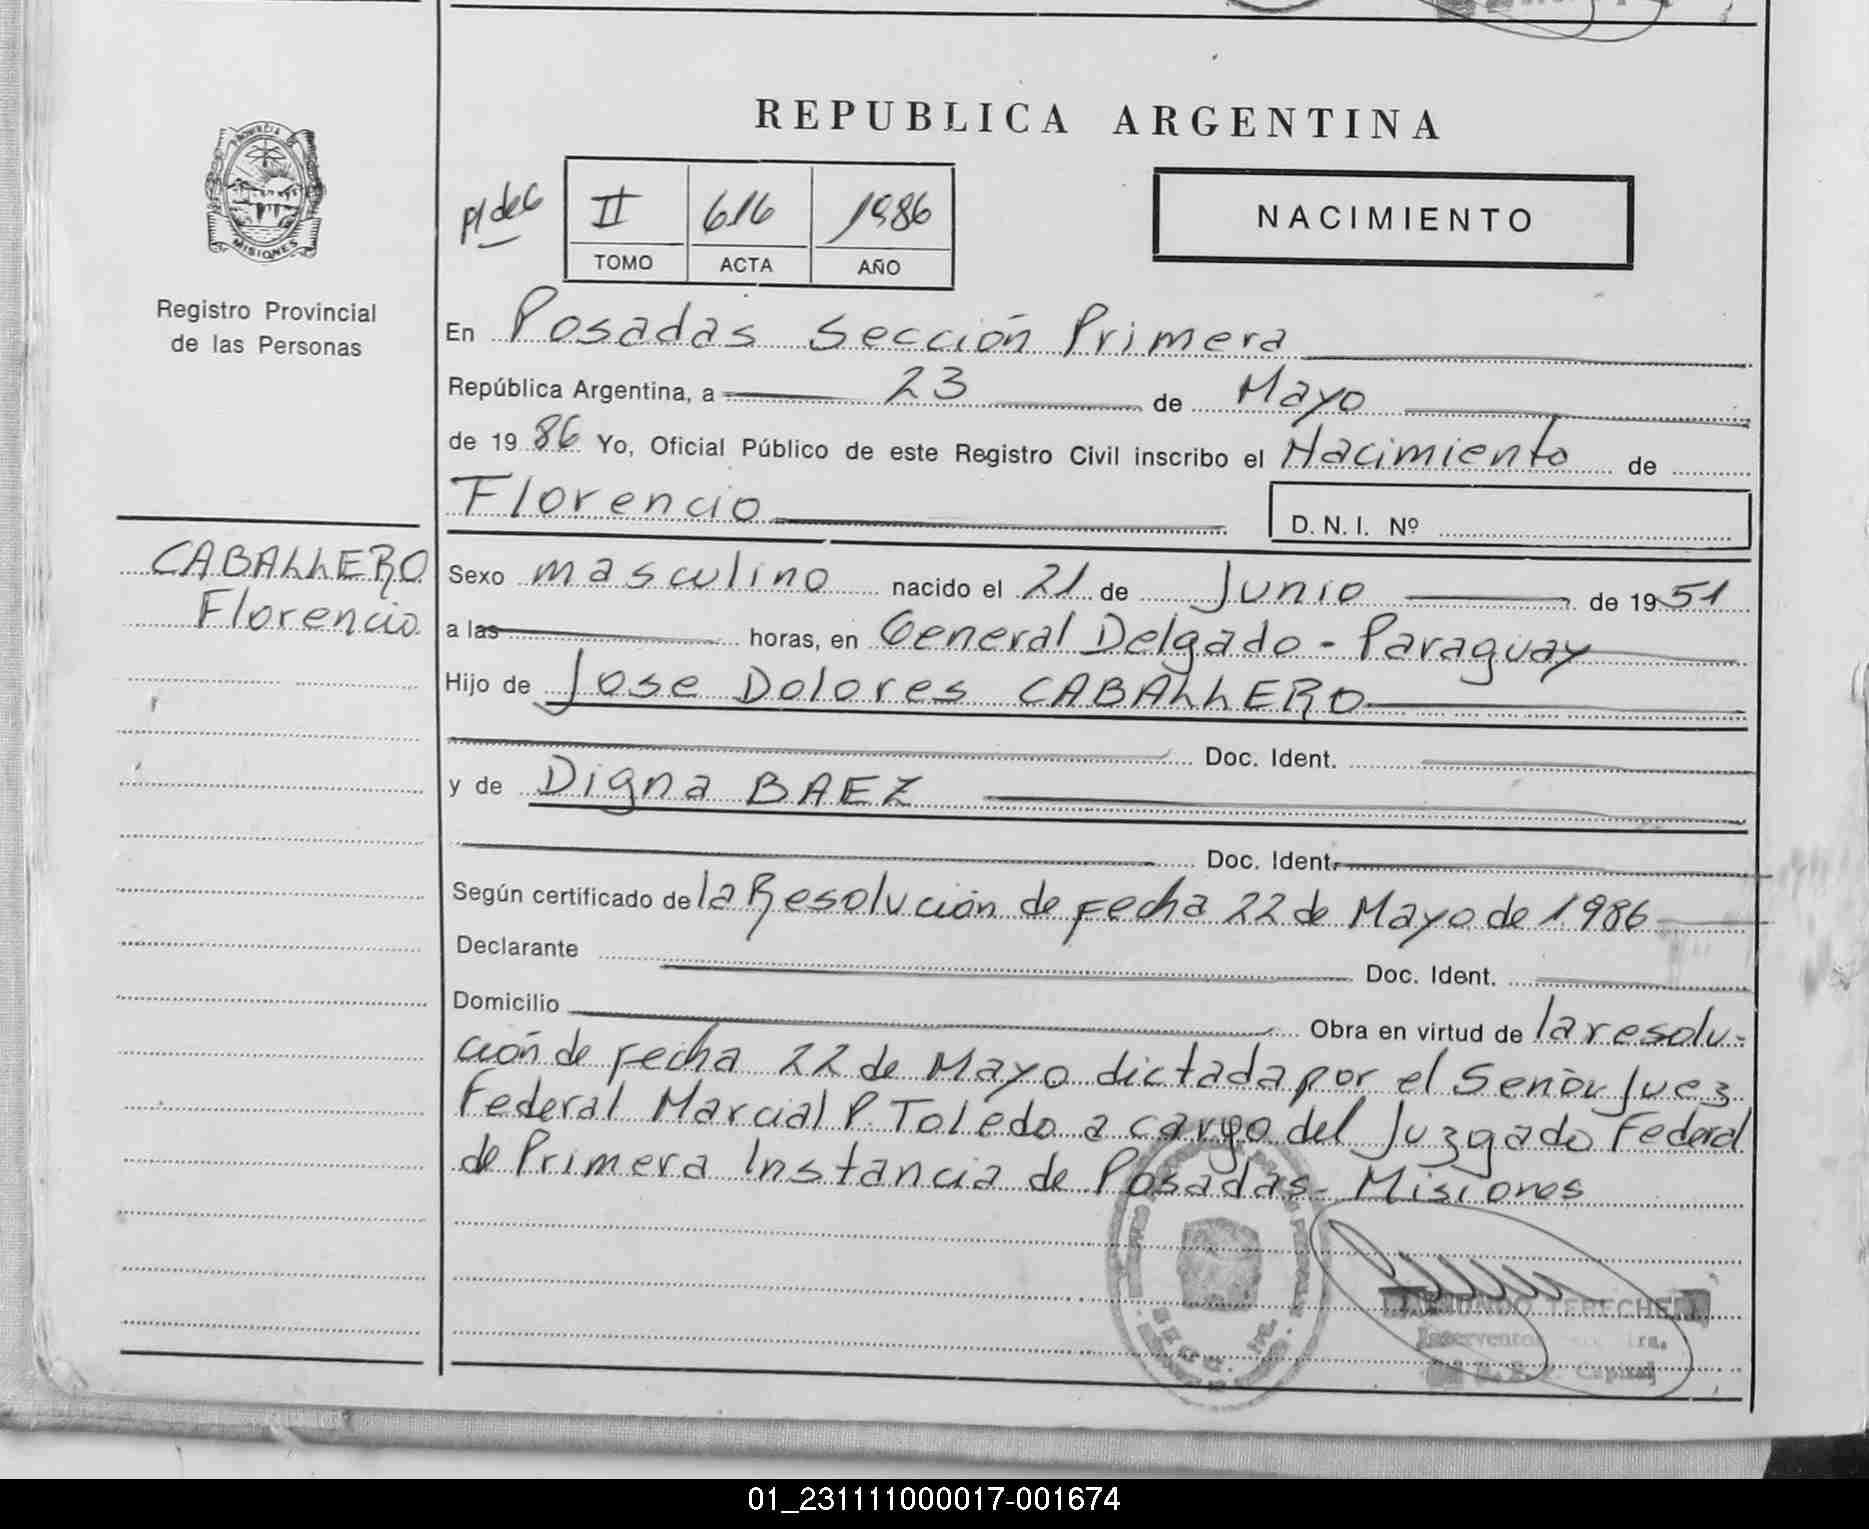 REPUBLICA ARGENTINA
PROVINCIA DE
MISIONES
Registro Provincial
de las Personas
II 616 1986
TOMO ACTA AÑO
NACIMIENTO
En Posadas Sección Primera
República Argentina, a 23 de Mayo
de 1986 Yo, Oficial Público de este Registro Civil inscribo el Nacimiento de
Florencio
D. N. I. Nº
CABALLERO
Florencio
Sexo masculino nacido el 21 de Junio de 1951
a las horas, en General Delgado - Paraguay
Hijo de Jose Dolores CABALLERO
Doc. Ident.
y de Digna BAEZ
Doc. Ident.
Según certificado de la Resolución de fecha 22 de Mayo de 1986
Declarante Doc. Ident.
Domicilio Obra en virtud de la resolu-
ción de fecha 22 de Mayo dictada por el Señor Juez
Federal Marcial P. Toledo a cargo del Juzgado Federal
de Primera Instancia de Posadas - Misiones
Capital
01_231111000017-001674